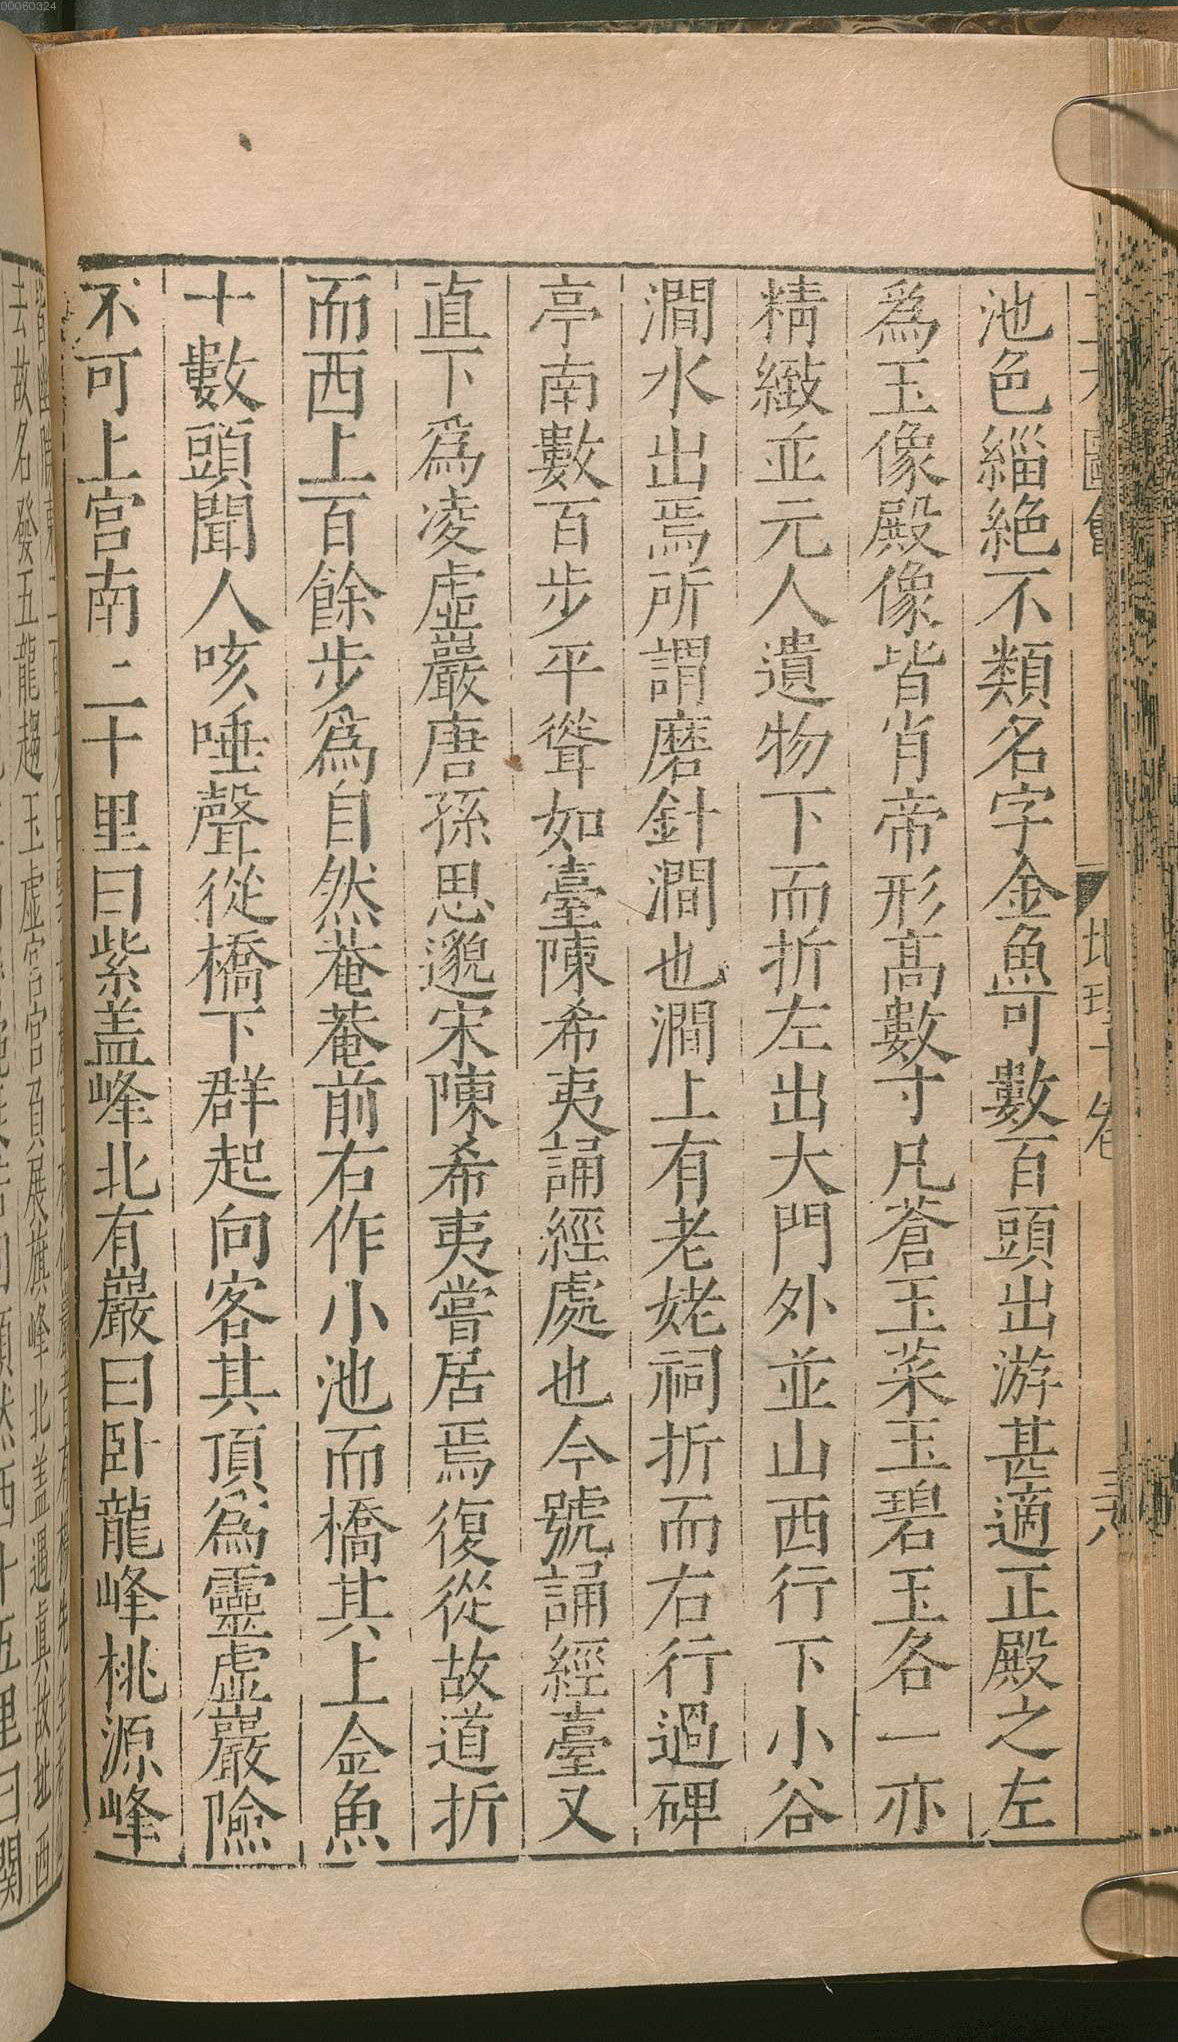 池色緇絶不類名字金魚可數百頭出游甚適正殿之左
為玉像殿像皆肖帝形高數寸凡蒼玉菜玉碧玉各一亦
精緻並元人遺物下而折左出大門外並山西行下小谷
澗水出焉所謂磨針澗也澗上有老姥祠折而右行過碑
亭南數百步平聳如臺陳希夷誦經處也今號誦經臺又
直下爲凌虛巖唐孫思邈宋陳希夷嘗居焉復從故道折
而西上百餘步爲自然菴菴前右作小池而橋其上金魚
十數頭聞人咳唾聲從橋下群起向客其頂為靈虛巖險
不可上宮南二十里曰紫盖峰北有巖曰卧龍峰桃源峰
去故名發五龍趨玉虛宮宮負展旗峰北盖遇真故址西
00060324